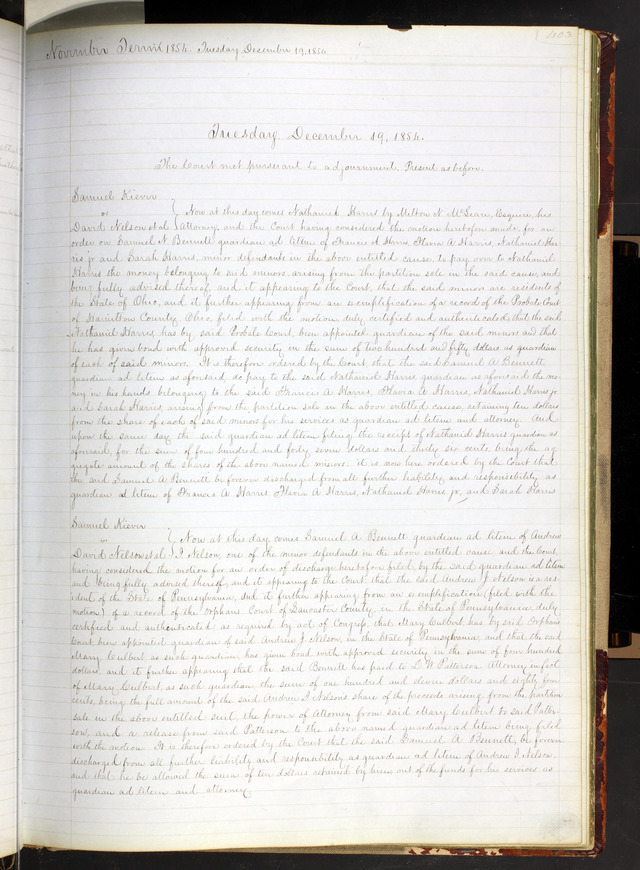 403
November Term 1854. Tuesday December 19, 1854.
Tuesday, December 19, 1854.
The Court met pursuant to adjournment, Present as before.
Samuel Kievin
vs } Now at this day comes Nathaniel Harris by Milton N. McLean, Esquire, his
David Nelson et al. attorney, and the Court having considered the motion heretofore made for an
order on Samuel A. Bennett guardian ad litem of Francis A Harris, Flavia A Harris, Nathaniel Har
ris jr and Sarah Harris, minor defendants in the above entitled cause to pay over to Nathaniel
Harris the money belonging to said minors, arising from the partition sale in the said cause, and
being fully advised thereof, and it appearing to the Court, that the said minors are residents of
the State of Ohio, and it further appearing from an exemplification of a record of the Probate Court
of County Ohio, filed with the motion, duly certified and authenticated, that the said
Nathaniel Harris, has by said Probate Court, been appointed guardian of the said minors and that
he has given bond with approved security in the sum of two hundred and fifty dollars as guardian
of each of said minors. It is therefore ordered by the Court that the said Samuel A. Bennett
guardian ad litem as aforesaid, do pay to the said Nathaniel Harris guardian as aforesaid the mo-
ney in his hands belonging to the said Francis A Harris, Flavia A Harris, Nathaniel Harris jr
and Sarah Harris, arising from the partition sale in the above entitled cause, retaining ten dollars
from the share of each of said minors for his services as guardian ad litem and attorney. And
upon the same day, the said guardian ad litem filing the receipt of Nathaniel Harris guardian as
aforesaid, for the sum of four hundred and forty seven dollars and thirty six cents, being the ag
gregate amount of the shares of the above named minors. it is now here ordered by the Court that
the said Samuel A. Bennett be forever discharged from all further liability and responsibility as
guardian ad litem of Francis A Harris Flavia A Harris, Nathaniel Harris jr, and Sarah Harris
Samuel Kievin
vs } Now at this day comes Samuel A. Bennett guardian ad litem of Andrew
David Nelson et al. J Nelson, one of the minor defendants in the above entitled cause, and the Court
having considered the motion for an order of discharge heretofore filed by the said guardian ad litem
and being fully advised thereof, and it appearing to the Court that the said Andrew J Nelson is a res-
ident of the State of Pennsylvania, and it further appearing from an exemplification (filed with the
motion) of a record of the Orphans Court of Lancaster County, in the State of Pennsylvania duly
certified and authenticated as required by act of Congress, that Mary Culbert has by said Orphans
Court been appointed guardian of said Andrew J Nelson, in the State of Pennsylvania, and that the said
Mary Culbert, as such guardian, has given bond with approved security, in the sum of four hundred
dollars, and it further appearing that the said Bennett has paid to D. W. Patterson, Attorney in fact
of Mary Culbert, as such guardian, the sum of one hundred and eleven dollars and eighty four
cents, being the full amount of the said Andrew J Nelson's share of the proceeds arising from the partition
sale in the above entitled suit, the power of Attorney from said Mary Culbert to said Patter-
son, and a release from said Patterson to the above named guardian ad litem being filed
with the motion. It is therefore ordered by the Court that the said Samuel A Bennett, be forever
discharged from all further liability and responsibility as guardian ad litem of Andrew J Nelson,
and that he be allowed the sum of ten dollars retained by him out of the funds for his services as
guardian ad litem and attorney.